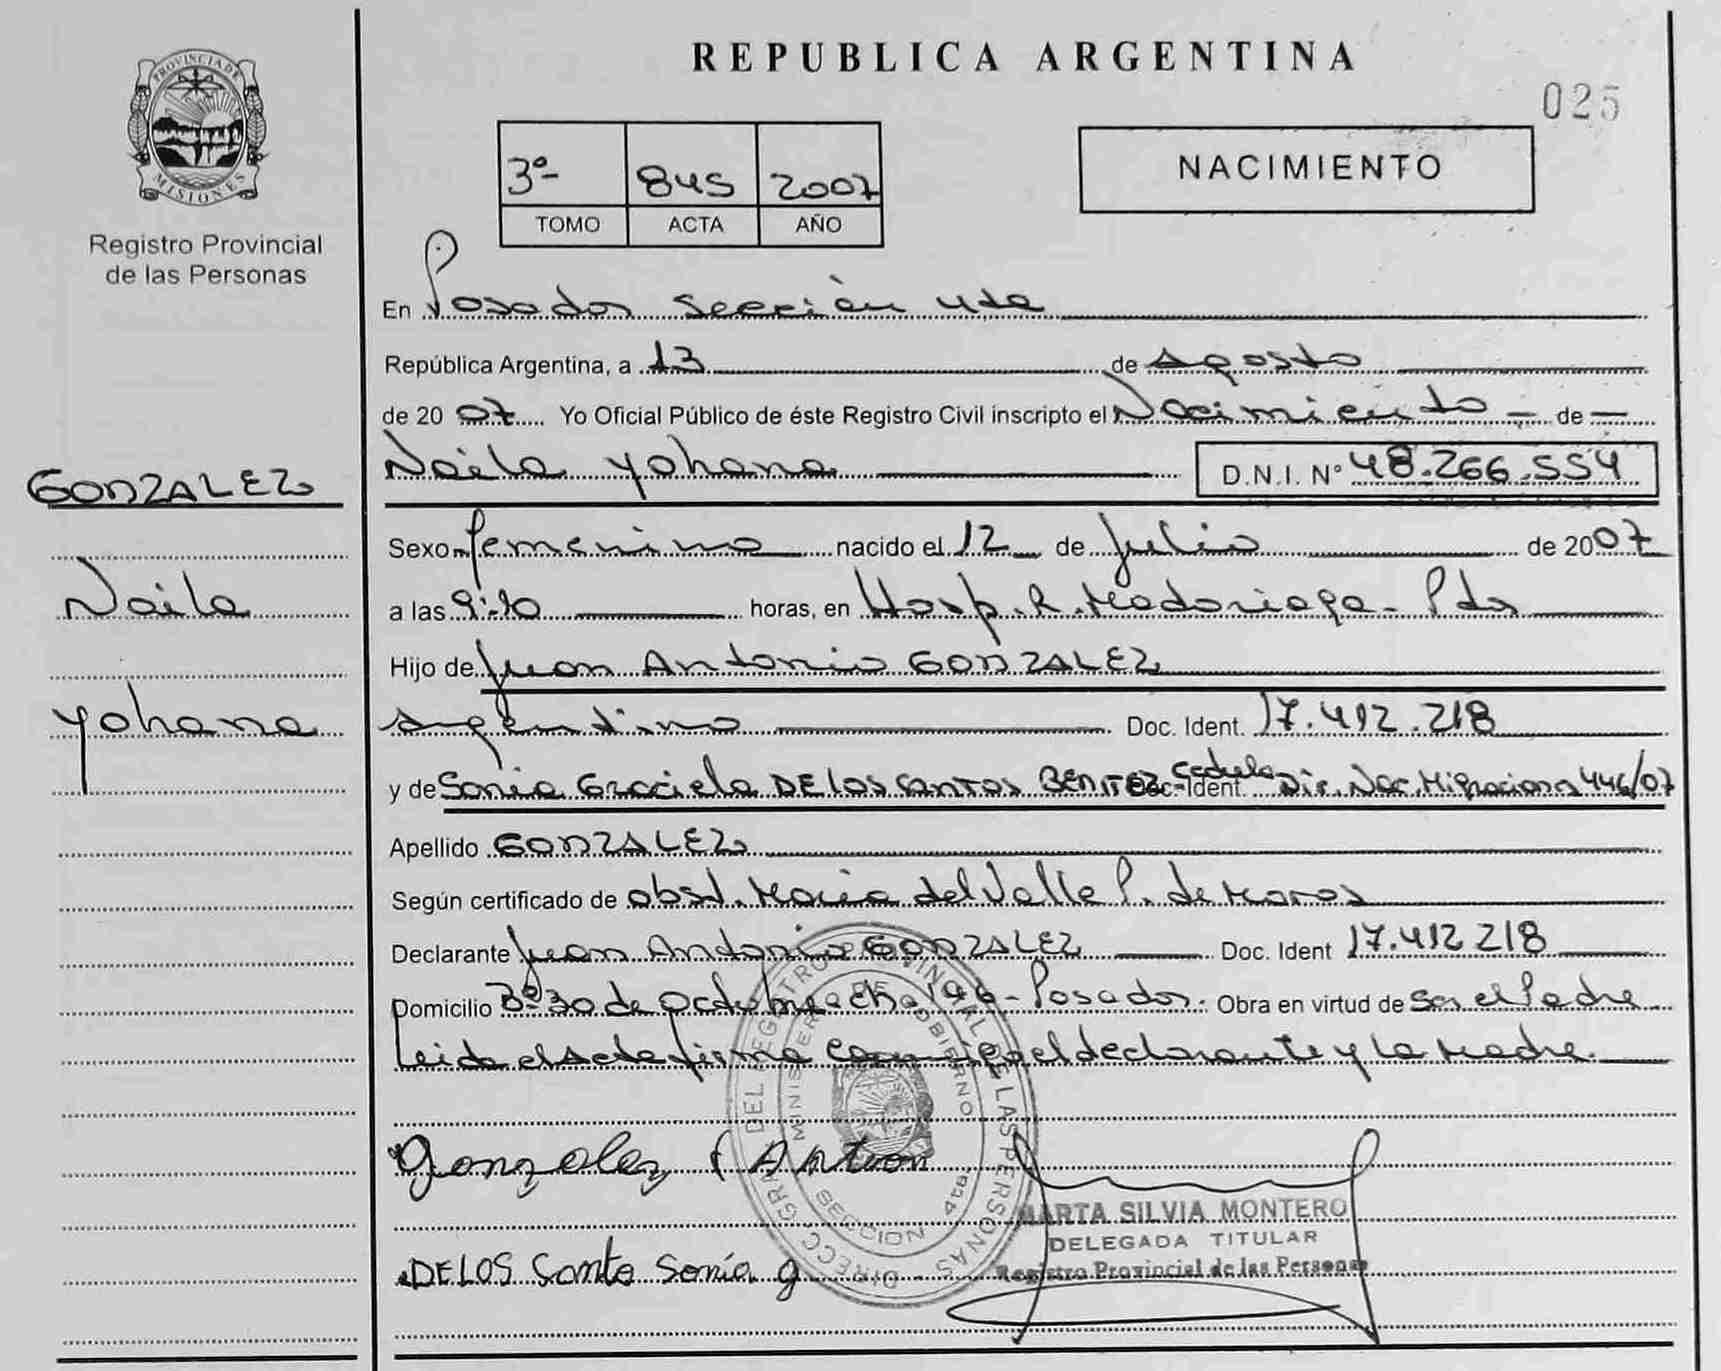 PROVINCIA DE
MISIONES
Registro Provincial
de las Personas
REPUBLICA ARGENTINA
025
3º 845 2007
TOMO ACTA AÑO
NACIMIENTO
En Posadas Sección 4ta
República Argentina, a 13 de Agosto
de 2007 Yo Oficial Público de éste Registro Civil inscripto el Nacimiento de
Naila Yohana D.N.I. Nº 48.266.554
GONZALEZ
Naila
Yohana
Sexo femenino nacido el 12 de Julio de 2007
a las 9:10 horas, en Hosp. R. Madariaga - Pdas
Hijo de Juan Antonio GONZALEZ
argentino Doc. Ident. 17.412.218
y de Sonia Graciela DE LOS SANTOS BENITEZ Doc. Ident. Cedula Dir. Nac. Migracions 446/07
Apellido GONZALEZ
Según certificado de obst. Maria del Valle P. de
Declarante Juan Antonio GONZALEZ Doc. Ident 17.412 218
Domicilio Bº 30 de Octubre ch. - Posadas. Obra en virtud de ser el Padre
Leida el Acta firma conmigo el declarante y la Madre.
Gonzalez J Anton
DELOS Santo Sonia g
DIRECC GRAL DEL REGISTRO PROVINCIAL DE LAS PERSONAS
MINISTERIO DE GOBIERNO
SECCION 4ta.
MARTA SILVIA MONTERO
DELEGADA TITULAR
Registro Provincial de las Personas